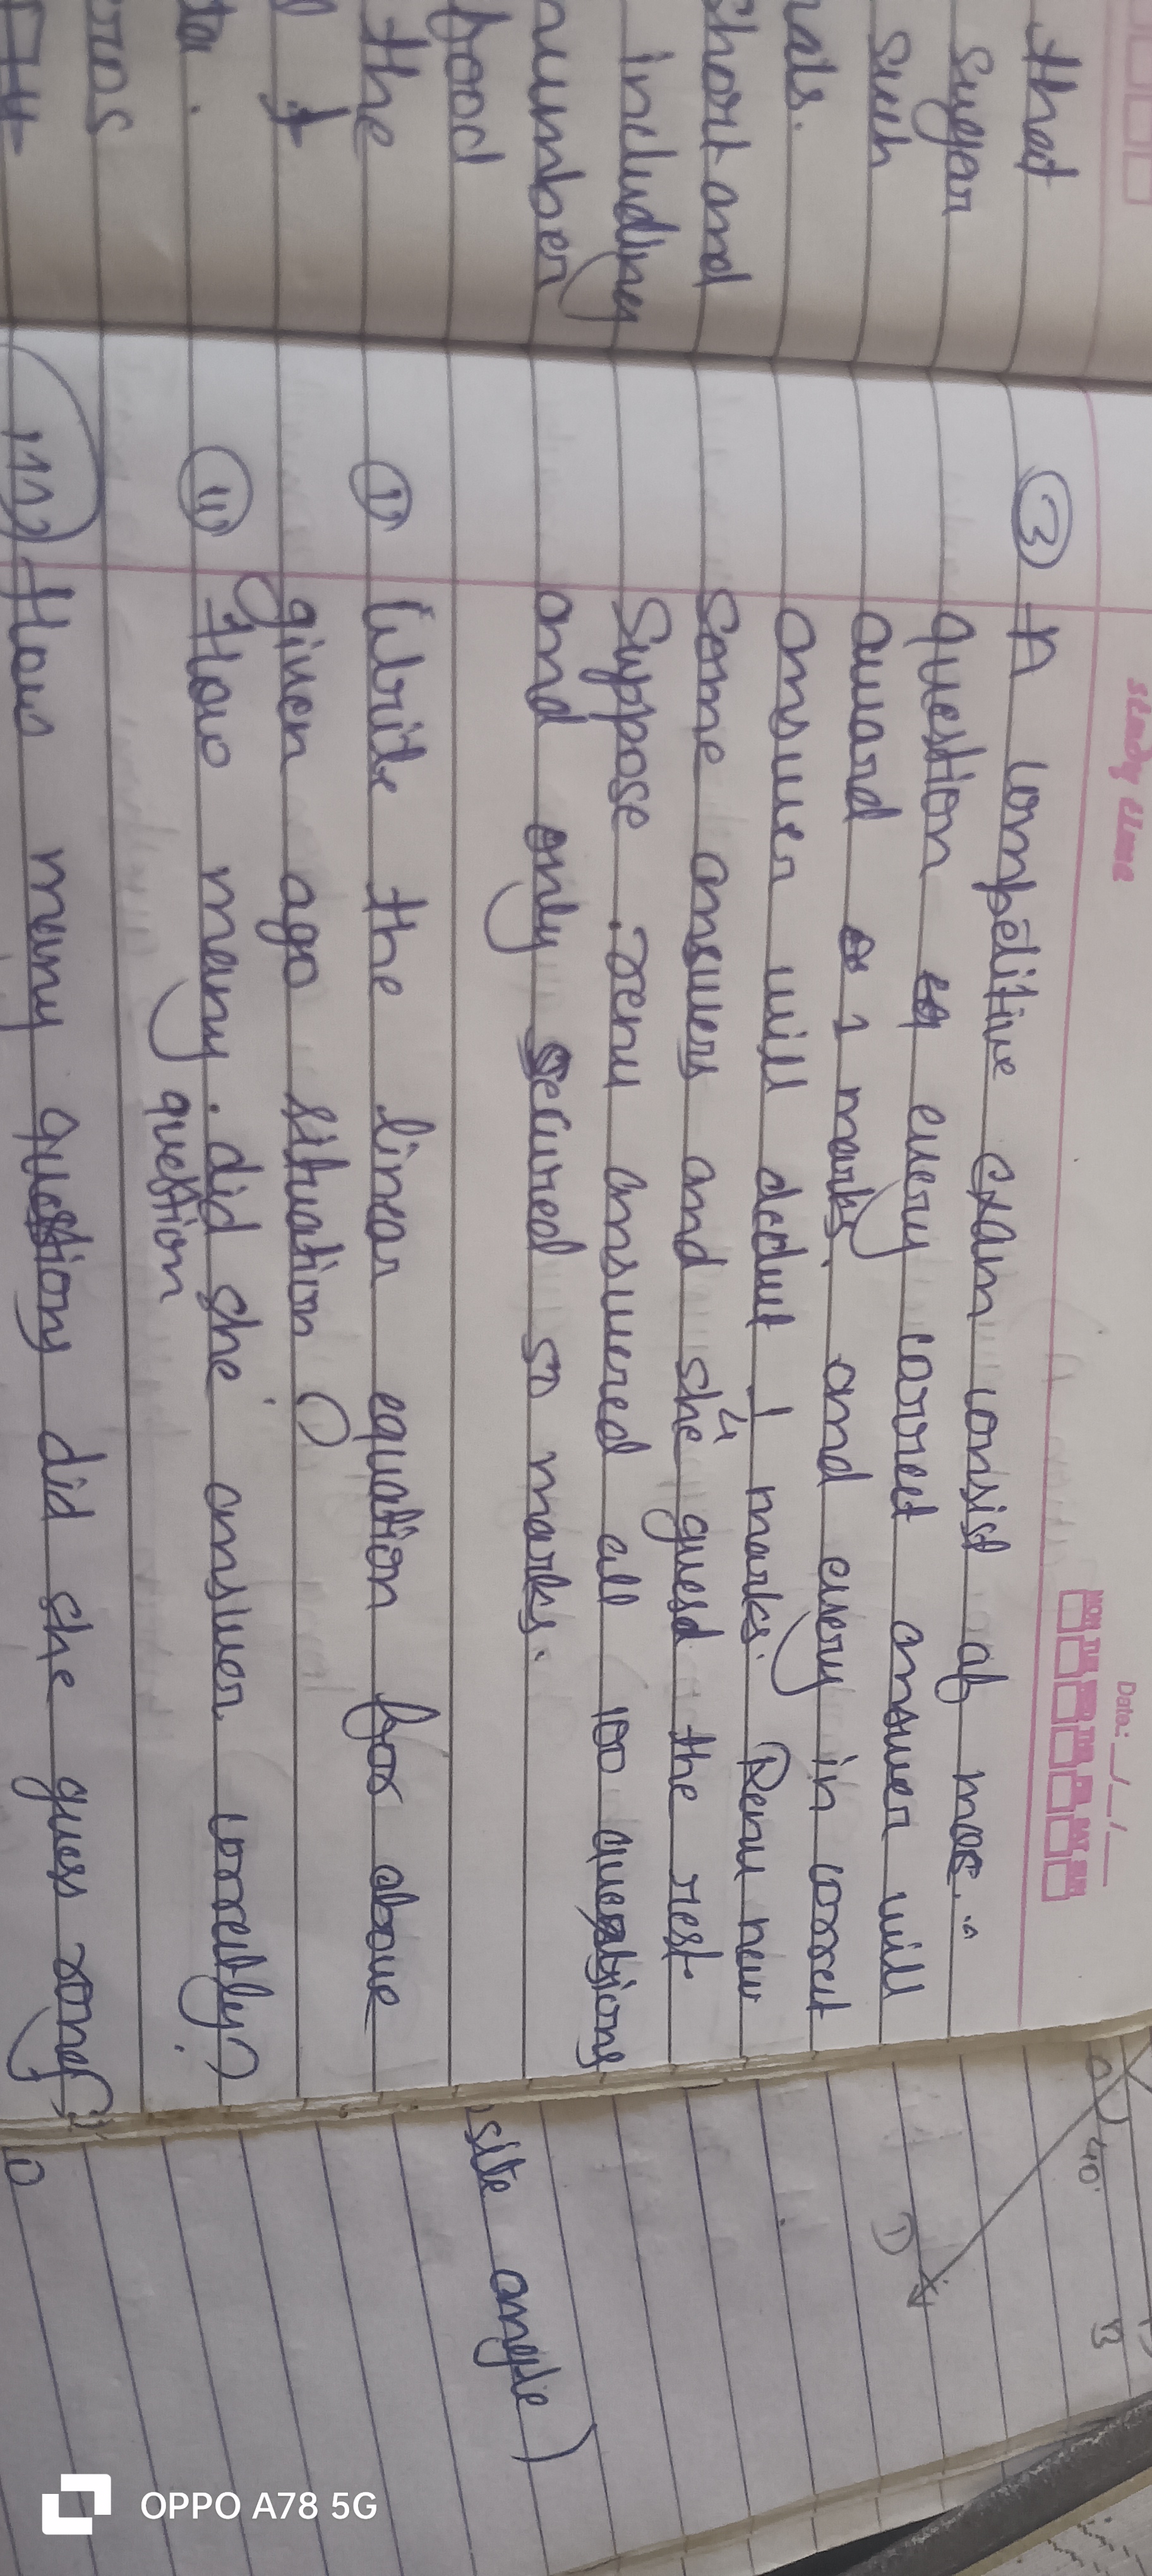 that
sugar
such
nals.
short and
including
number
food
the
study time
Date: __/__/__
MON TUE WED THU FRI SAT SUN
③ A competitive exam consist of mcq."
question every correct answer will
award 1 marks. and every in correct
answer will deduct 1/4 marks. Renu new
some answers and she guesd the rest.
Suppose renu answered all 100 questions
and only secured 50 marks.
① Write the linear equation for above
given ago situation
⑪ How many did she answer correctly?
question
111) How many questions did she guess
40°
D
B
site anglie)
OPPO A78 5G